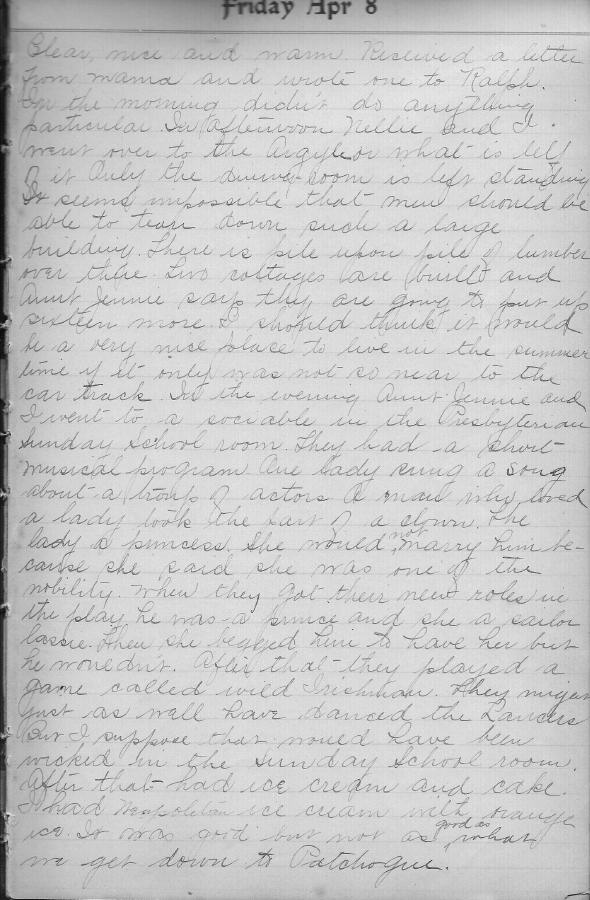 Friday Apr 8
Clear, nice and warm. Received a letter
from mama and wrote one to Ralph.
In the morning didn't do anything
particular. In afternoon Nellie and I
went over to the Argyle or what is left
of it. Only the dinner-room is left standing
It seems impossible that men should be
able to tear down such a large
building. There is pile upon pile of lumber
over there. Two cottages are built and
Aunt Jennie says they are going to put up
sixteen more. I should think it would
be a very nice place to live in the summer
time if it only was not so near to the
car track. In the evening Aunt Jennie and
I went to a sociable in the Presbyterian
Sunday School room. They had a short
musical program. One lady sung a song
about a troup of actors. A man who loved
a lady took the part of a clown, the
lady a princess. She would not marry him be-
cause she said she was one of the
nobility. When they got their new roles in
the play he was a prince and she a sailor
lassie. Then she begged him to have her but
he wouldn't. After that they played a
game called wild Irishman. They might
just as well have danced the Lancers
But I suppose that would have been
wicked in the Sunday School room.
After that had ice cream and cake.
I had Neapolitan ice cream with orange
ice. It was good but not as good as what
we get down to Patchogue.